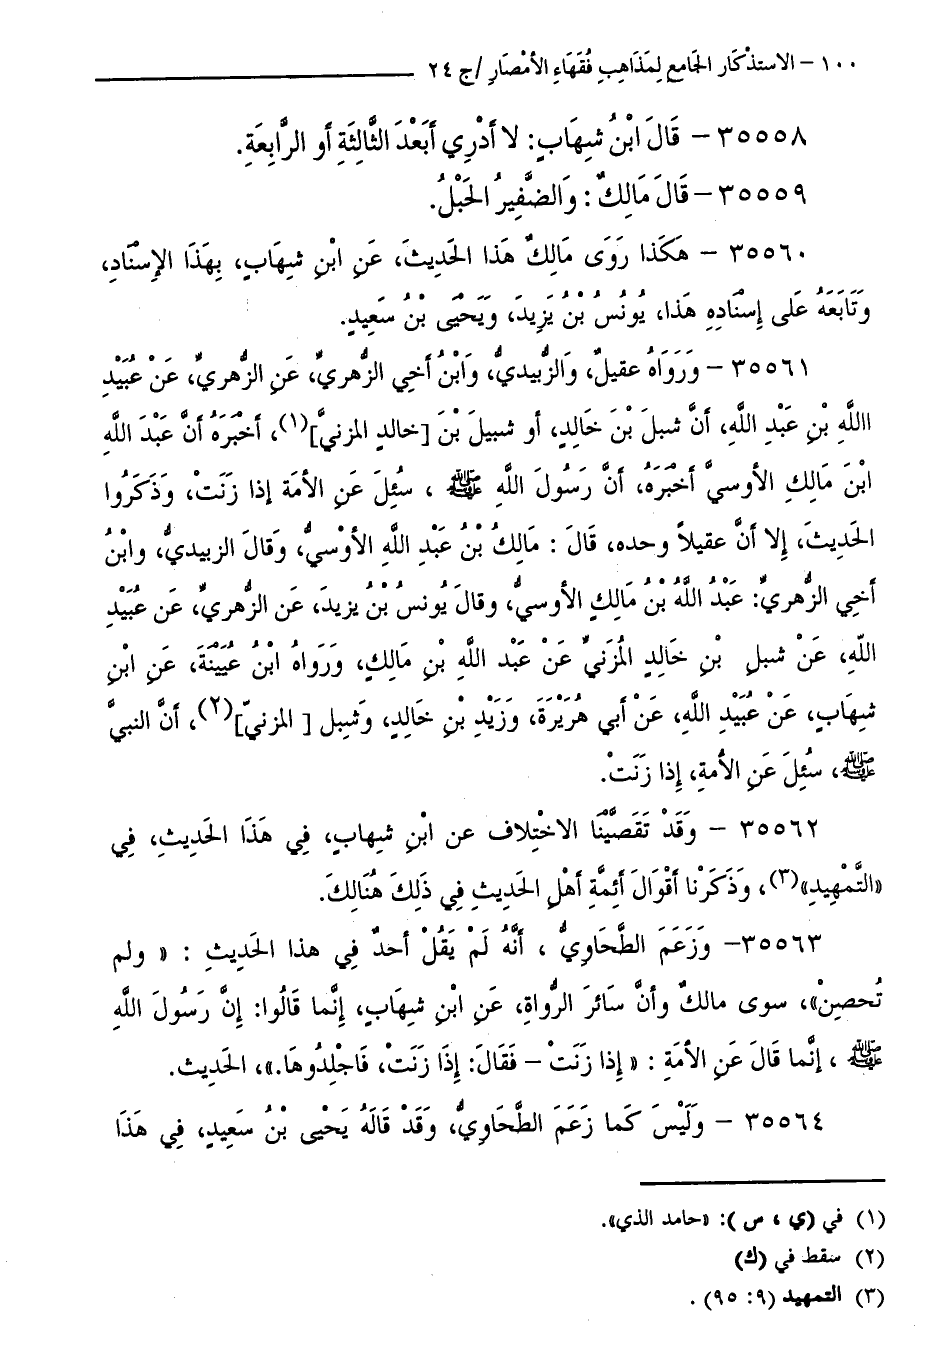 ١٠٠ – الاستذْكَار الجَامع لِمَذَاهِبِ فُقَهَاءِ الأمْصَارِ /ج ٢٤
٣٥٥٥٨ – قَالَ ابْنُ شِهَابٍ: لا أدْرِي أبَعْدَ الثَّالِثَةِ أو الرَّابِعَةِ.
٣٥٥٥٩ – قَالَ مَالِكٌ : وَالضَّفِيرُ الحَبْلُ.
٣٥٥٦٠ – هَكَذا رَوَى مَالِكٌ هَذا الحَدِيثَ، عَنِ ابْنِ شِهَابٍ، بِهَذَا الإِسْنَادِ،
وَتَابَعَهُ عَلى إِسْنَادِهِ هَذا، يُونُسُ بْنُ يَزِيدَ، وَيَحْيَى بْنُ سَعِيدٍ.
٣٥٥٦١ – وَرَوَاهُ عقيلٌ، وَالزُّبيديُّ، وَابْنُ أخِي الزُّهريِّ، عَنِ الزُّهريِّ، عَنْ عُبَيْدِ
االلَّهِ بْنِ عَبْدِ اللَّهِ، أنَّ شبلَ بْنَ خَالِدٍ، أو شبيلَ بْنَ [خالدٍ المزنيَّ](١)، أخْبَرَهُ أنَّ عَبْدَ اللَّهِ
ابْنَ مَالِكِ الأوسيَّ أخْبَرَهُ، أنَّ رَسُولَ اللَّهِ ﷺ ، سئِلَ عَنِ الأمَة إذا زَنَتْ، وَذَكَرُوا
الحَدِيثَ، إلا أنَّ عقيلاً وحده، قَالَ : مَالِكُ بْنُ عَبْدِ اللَّهِ الأوْسيُّ، وَقالَ الزبيديُّ، وابْنُ
أخِي الزُّهريِّ: عَبْدُ اللَّهُ بْنُ مَالِكٍ الأوسيُّ، وقالَ يُونسُ بْنُ يزيدَ، عَن الزُّهريِّ، عَن عُبَيْدِ
اللَّهِ، عَنْ شبلِ بْنِ خَالِدٍ المُزَنيِّ عَنْ عَبْد اللَّهِ بْنِ مَالِكٍ، وَرَوَاهُ ابْنُ عُيَيْنَةَ، عَنِ ابْنِ
شِهَابٍ، عَنْ عُبَيْدِ اللَّهِ، عَنْ أبي هُرَيْرَةَ، وَزَيْدِ بْنِ خَالِدٍ، وَشبل [ المزنيّ](٢)، أنَّ النبيَّ
ﷺ، سُئِلَ عَنِ الأمةِ، إذا زَنَتْ.
٣٥٥٦٢ – وَقَدْ تَقَصَّيْنَا الاخْتِلاف عن ابْنِ شِهابٍ، فِي هَذَا الحَدِيثِ، فِي
«التَّمْهِيدِ»(٣)، وَذَكَرْنا أقْوَالَ أئِمَّةِ أهْلِ الحَدِيثِ فِي ذَلِكَ هُنَالِكَ.
٣٥٥٦٣– وَزَعَمَ الطَّحَاوِيُّ ، أنَّهُ لَمْ يَقُلْ أحدٌ فِي هذا الحَدِيثِ : « ولم
تُحصِنْ»، سوى مالكٌ وأنَّ سَائرَ الرُّواةِ، عَنِ ابْنِ شِهَابٍ، إنَّما قَالُوا: إنَّ رَسُولَ اللَّهِ
ﷺ ، إنَّما قَالَ عَنِ الأمَةِ : « إذا زَنَتْ – فَقَالَ: إذَا زَنَتْ، فَاجْلِدُوهَا.»، الحَدِيث.
٣٥٥٦٤ – وَلَيْسَ كَما زَعَمَ الطَّحَاوِيُّ، وَقَدْ قَالَهُ يَحْيى بْنُ سَعِيدٍ، فِي هَذَا
(١) في (ي ، س ): «حامد الذي».
(٢) سقط في (ك)
(٣) التمهيد (٩: ٩٥) .